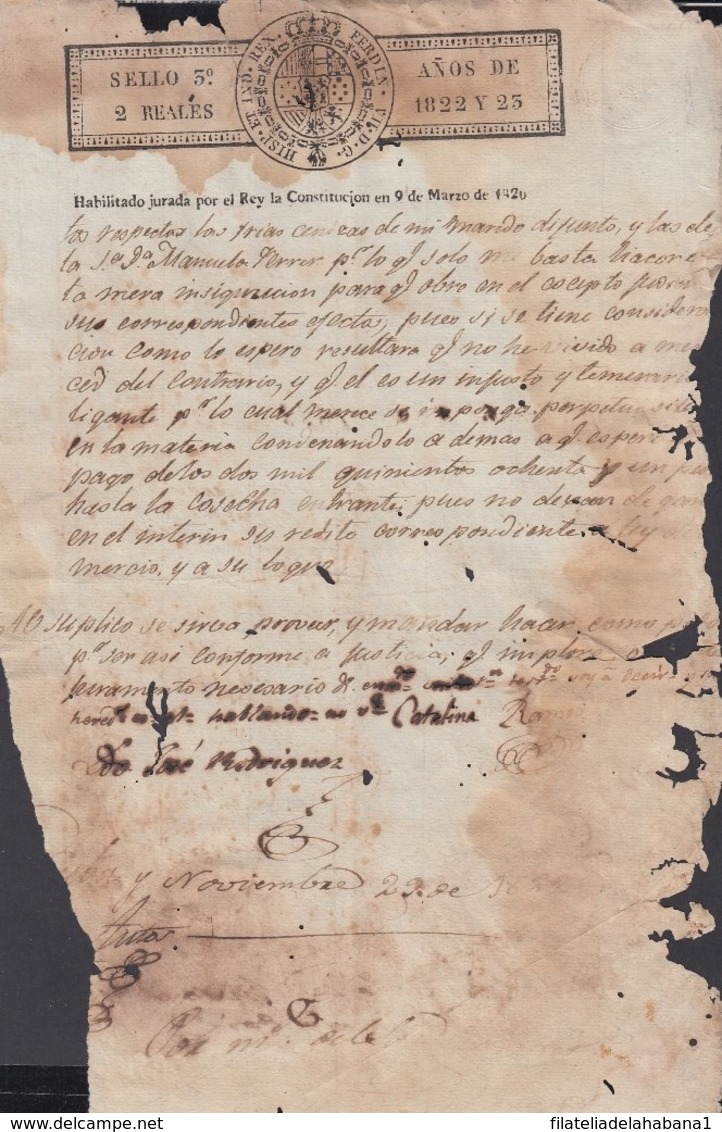 SELLO 3º
2 REALES
HISP. ET IND. REX. FERDIN. VII. D. G.
AÑOS DE
1822 Y 23
Habilitado jurada por el Rey la Constitucion en 9 de Marzo de 1820
los respectos las frias cenizas de mi marido difunto, y las de
la S.ª D.ª Manuela Ferrer p.r lo q.e solo me basta hacer e
ta mera insiquicion para q.e obre en el
sus correspondientes efectos, pues si se tiene considera
cion como lo espero resultara q.e no he vivido a mer
ced del contrario, y q.e el es un injusto y temerario
ligante p.r lo cual merece se imponga perpetuo sile
en la materia condenandolo a demas a q.e espere
pago de los dos mil quinientos ochenta y un pes
hasta la cosecha entrante, pues no dejan de gan
en el interin su redito correspondiente a ley
mercio, y a su logro
A V suplico se sirva proveer, y mandar hacer como
p.r ser asi conforme a justicia, q.e imploro
juramento necesario voy a decir
hallando no Catalina Ramos
Ldo José Rodriguez
y Noviembre 29 de
Auto
Por m.
filateliadelahabana1